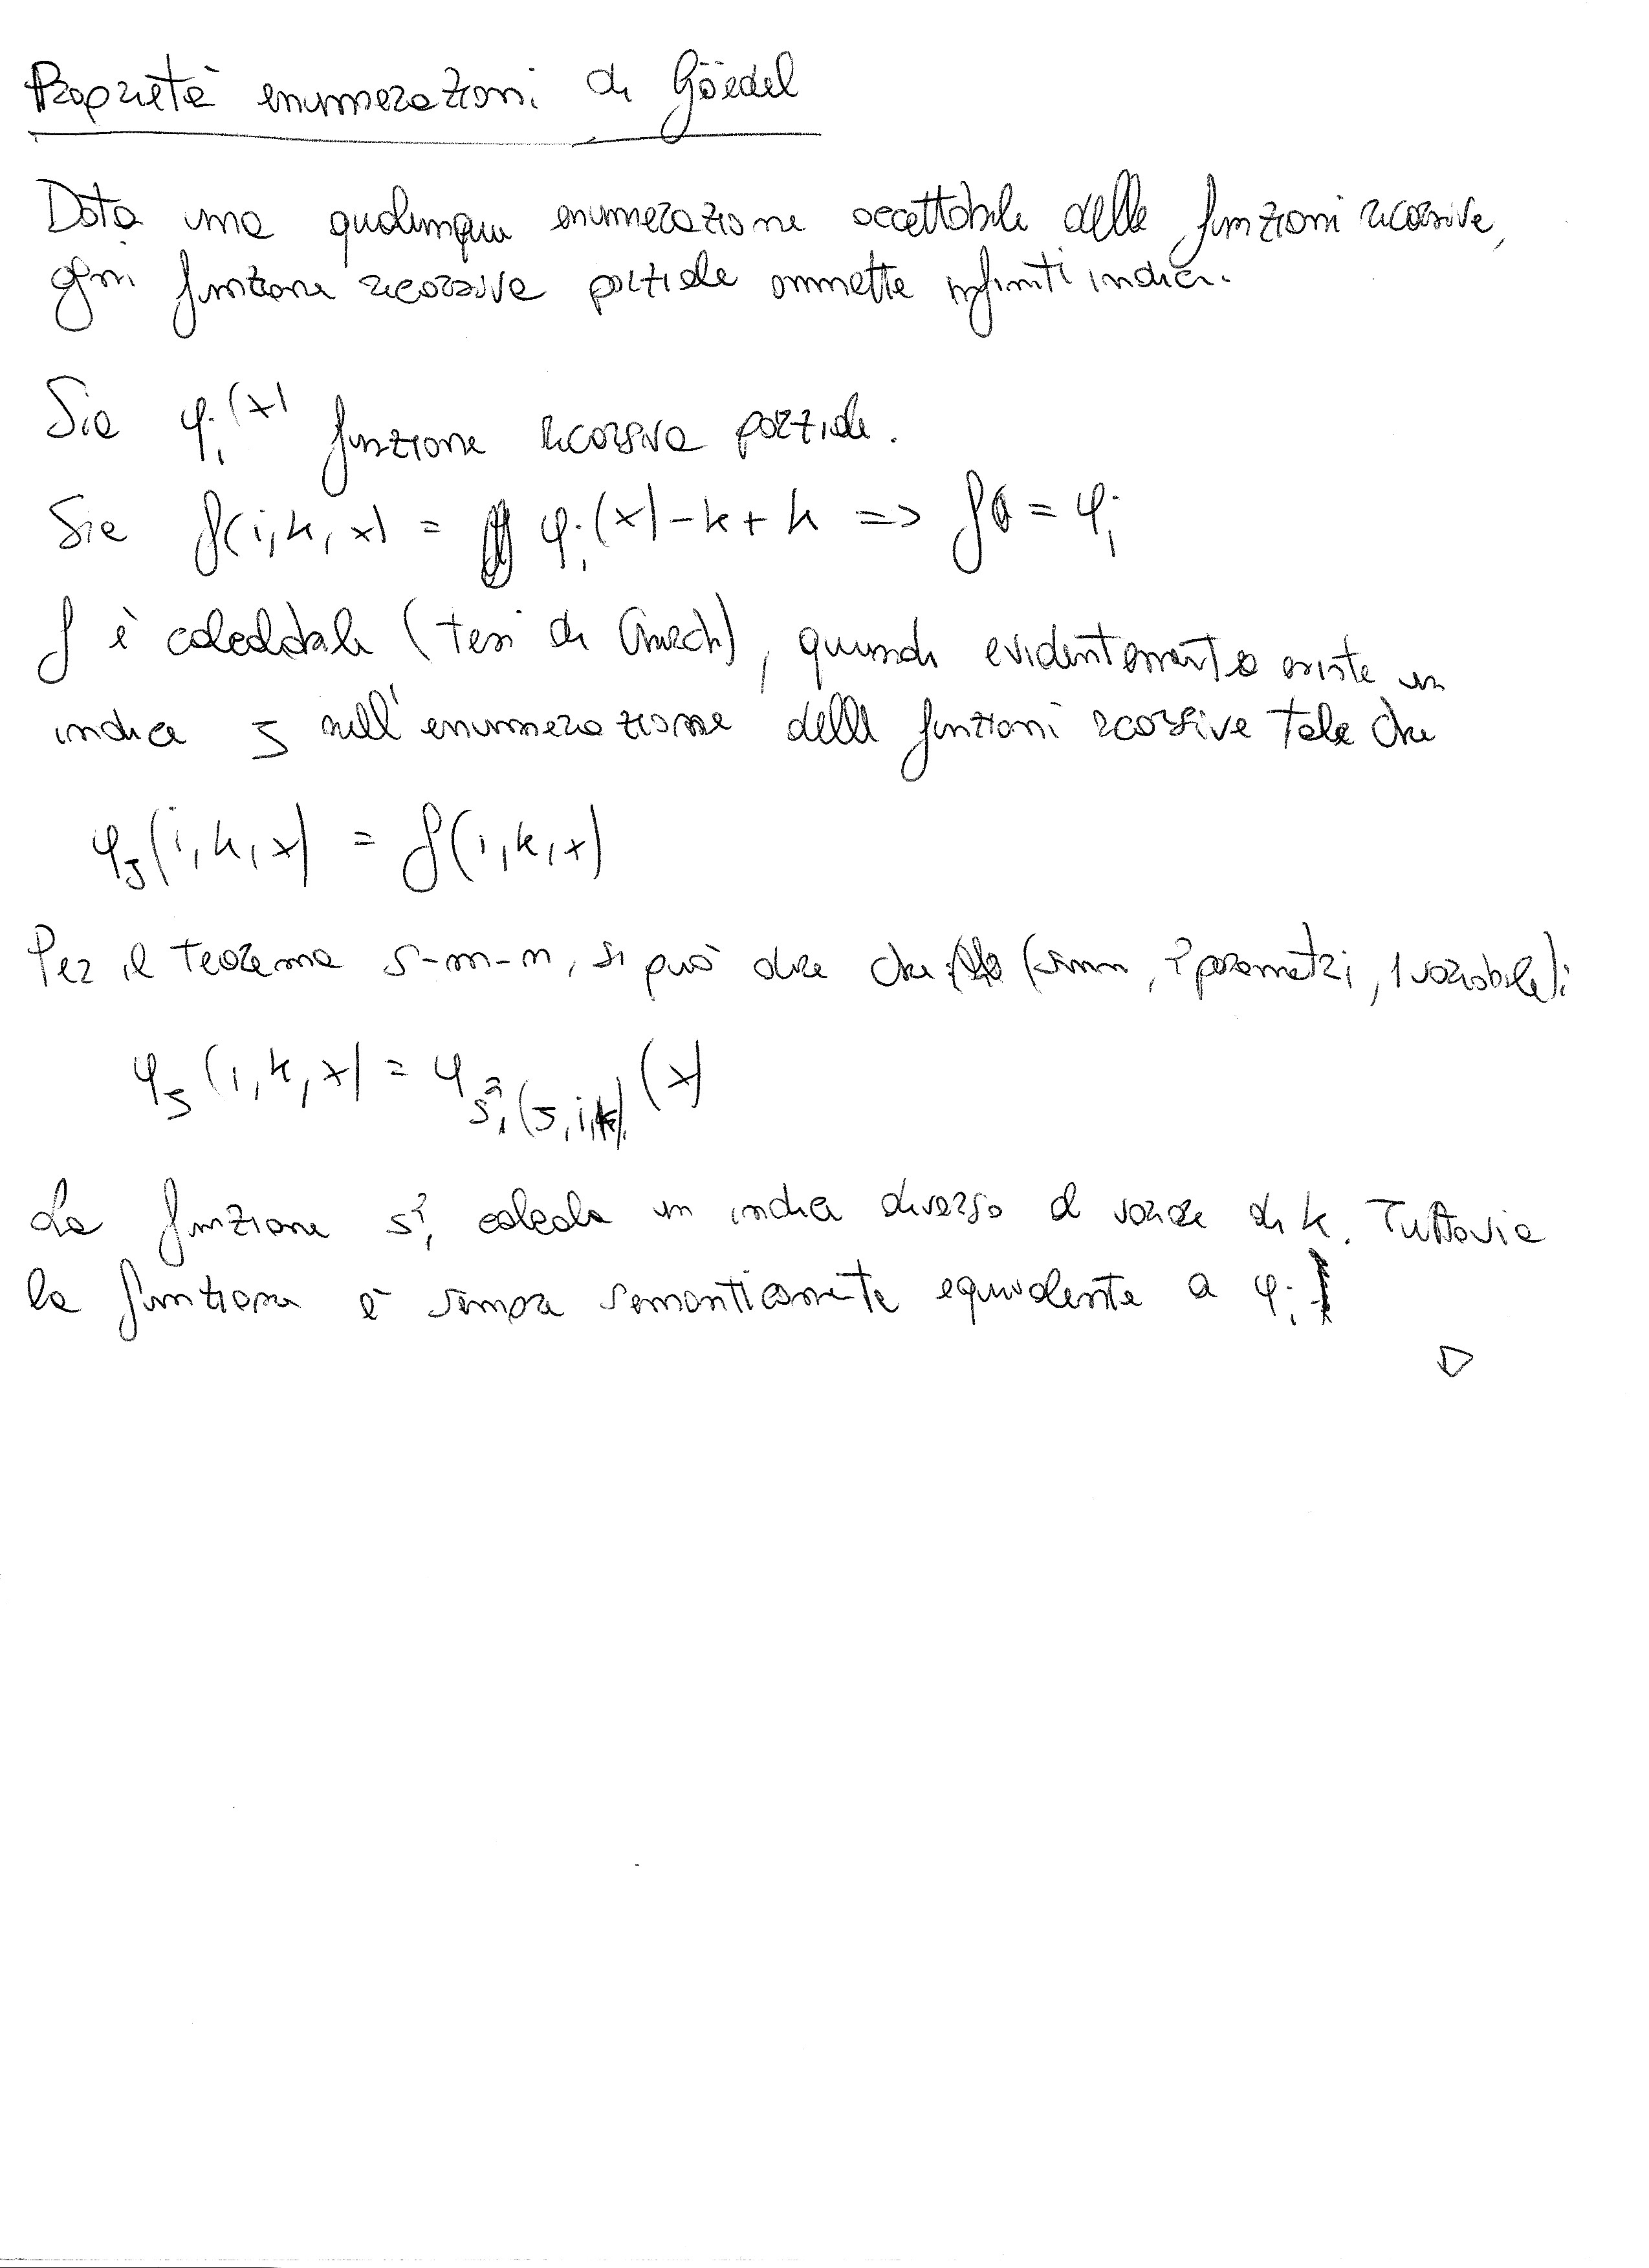 Proprietà enumerazioni di Göedel
Data una qualunque enumerazione accettabile delle funzioni ricorsive,
ogni funzione ricorsiva parziale ammette infiniti indici.
Sia φᵢ(x) funzione ricorsiva parziale.
Sia f(i,k,x) = φᵢ(x)-k+k => f = φᵢ
f è calcolabile (tesi di Church), quindi evidentemente esiste un
indice J nell'enumerazione delle funzioni ricorsive tale che
φJ(i,k,x) = f(i,k,x)
Per il teorema s-m-n, si può dire che (smn, 2 parametri, 1 variabile):
φJ(i,k,x) = φs²₁(J,i,k)(x)
La funzione s²₁ calcola un indice diverso al variare di k. Tuttavia
la funzione è sempre semanticamente equivalente a φᵢ